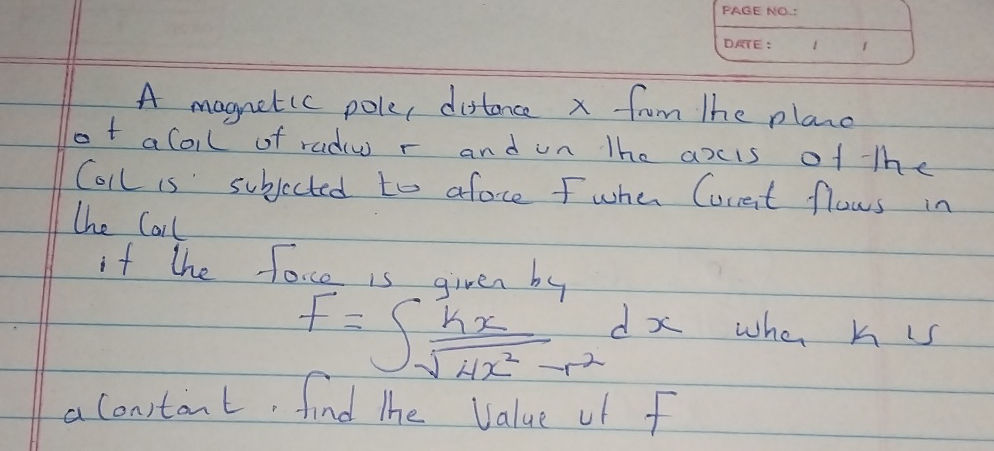 PAGE NO.:
DATE: / /
A magnetic pole, distance x from the plane
of a coil of radius r and on the axis of the
Coil is subjected to a force F when Current flows in
the Coil
if the force is given by
F = ∫ kx / √4x² - r² dx when k is
a constant. find the Value of F